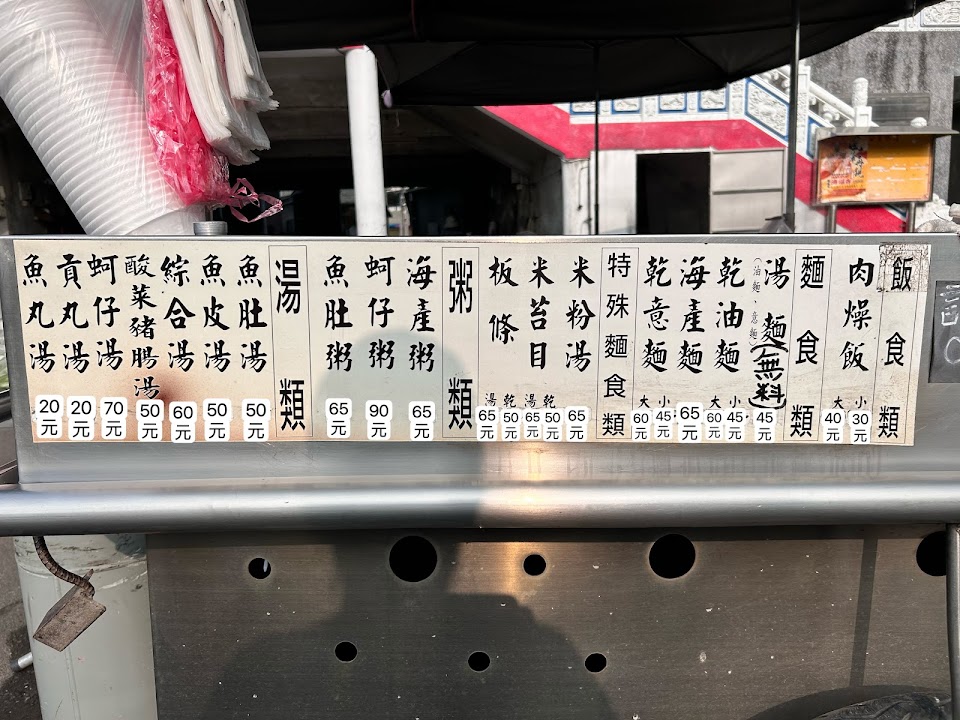 飯食類
肉燥飯 大40元 小30元
麵食類
湯麵(無料) (油麵、意麵) 45元
乾油麵 大60元 小45元
海產麵 65元
乾意麵 大60元 小45元
特殊麵食類
米粉湯 65元
米苔目 湯65元 乾50元
板條 湯65元 乾50元
粥類
海產粥 65元
蚵仔粥 90元
魚肚粥 65元
湯類
魚肚湯 50元
魚皮湯 50元
綜合湯 60元
酸菜豬腸湯 50元
蚵仔湯 70元
貢丸湯 20元
魚丸湯 20元